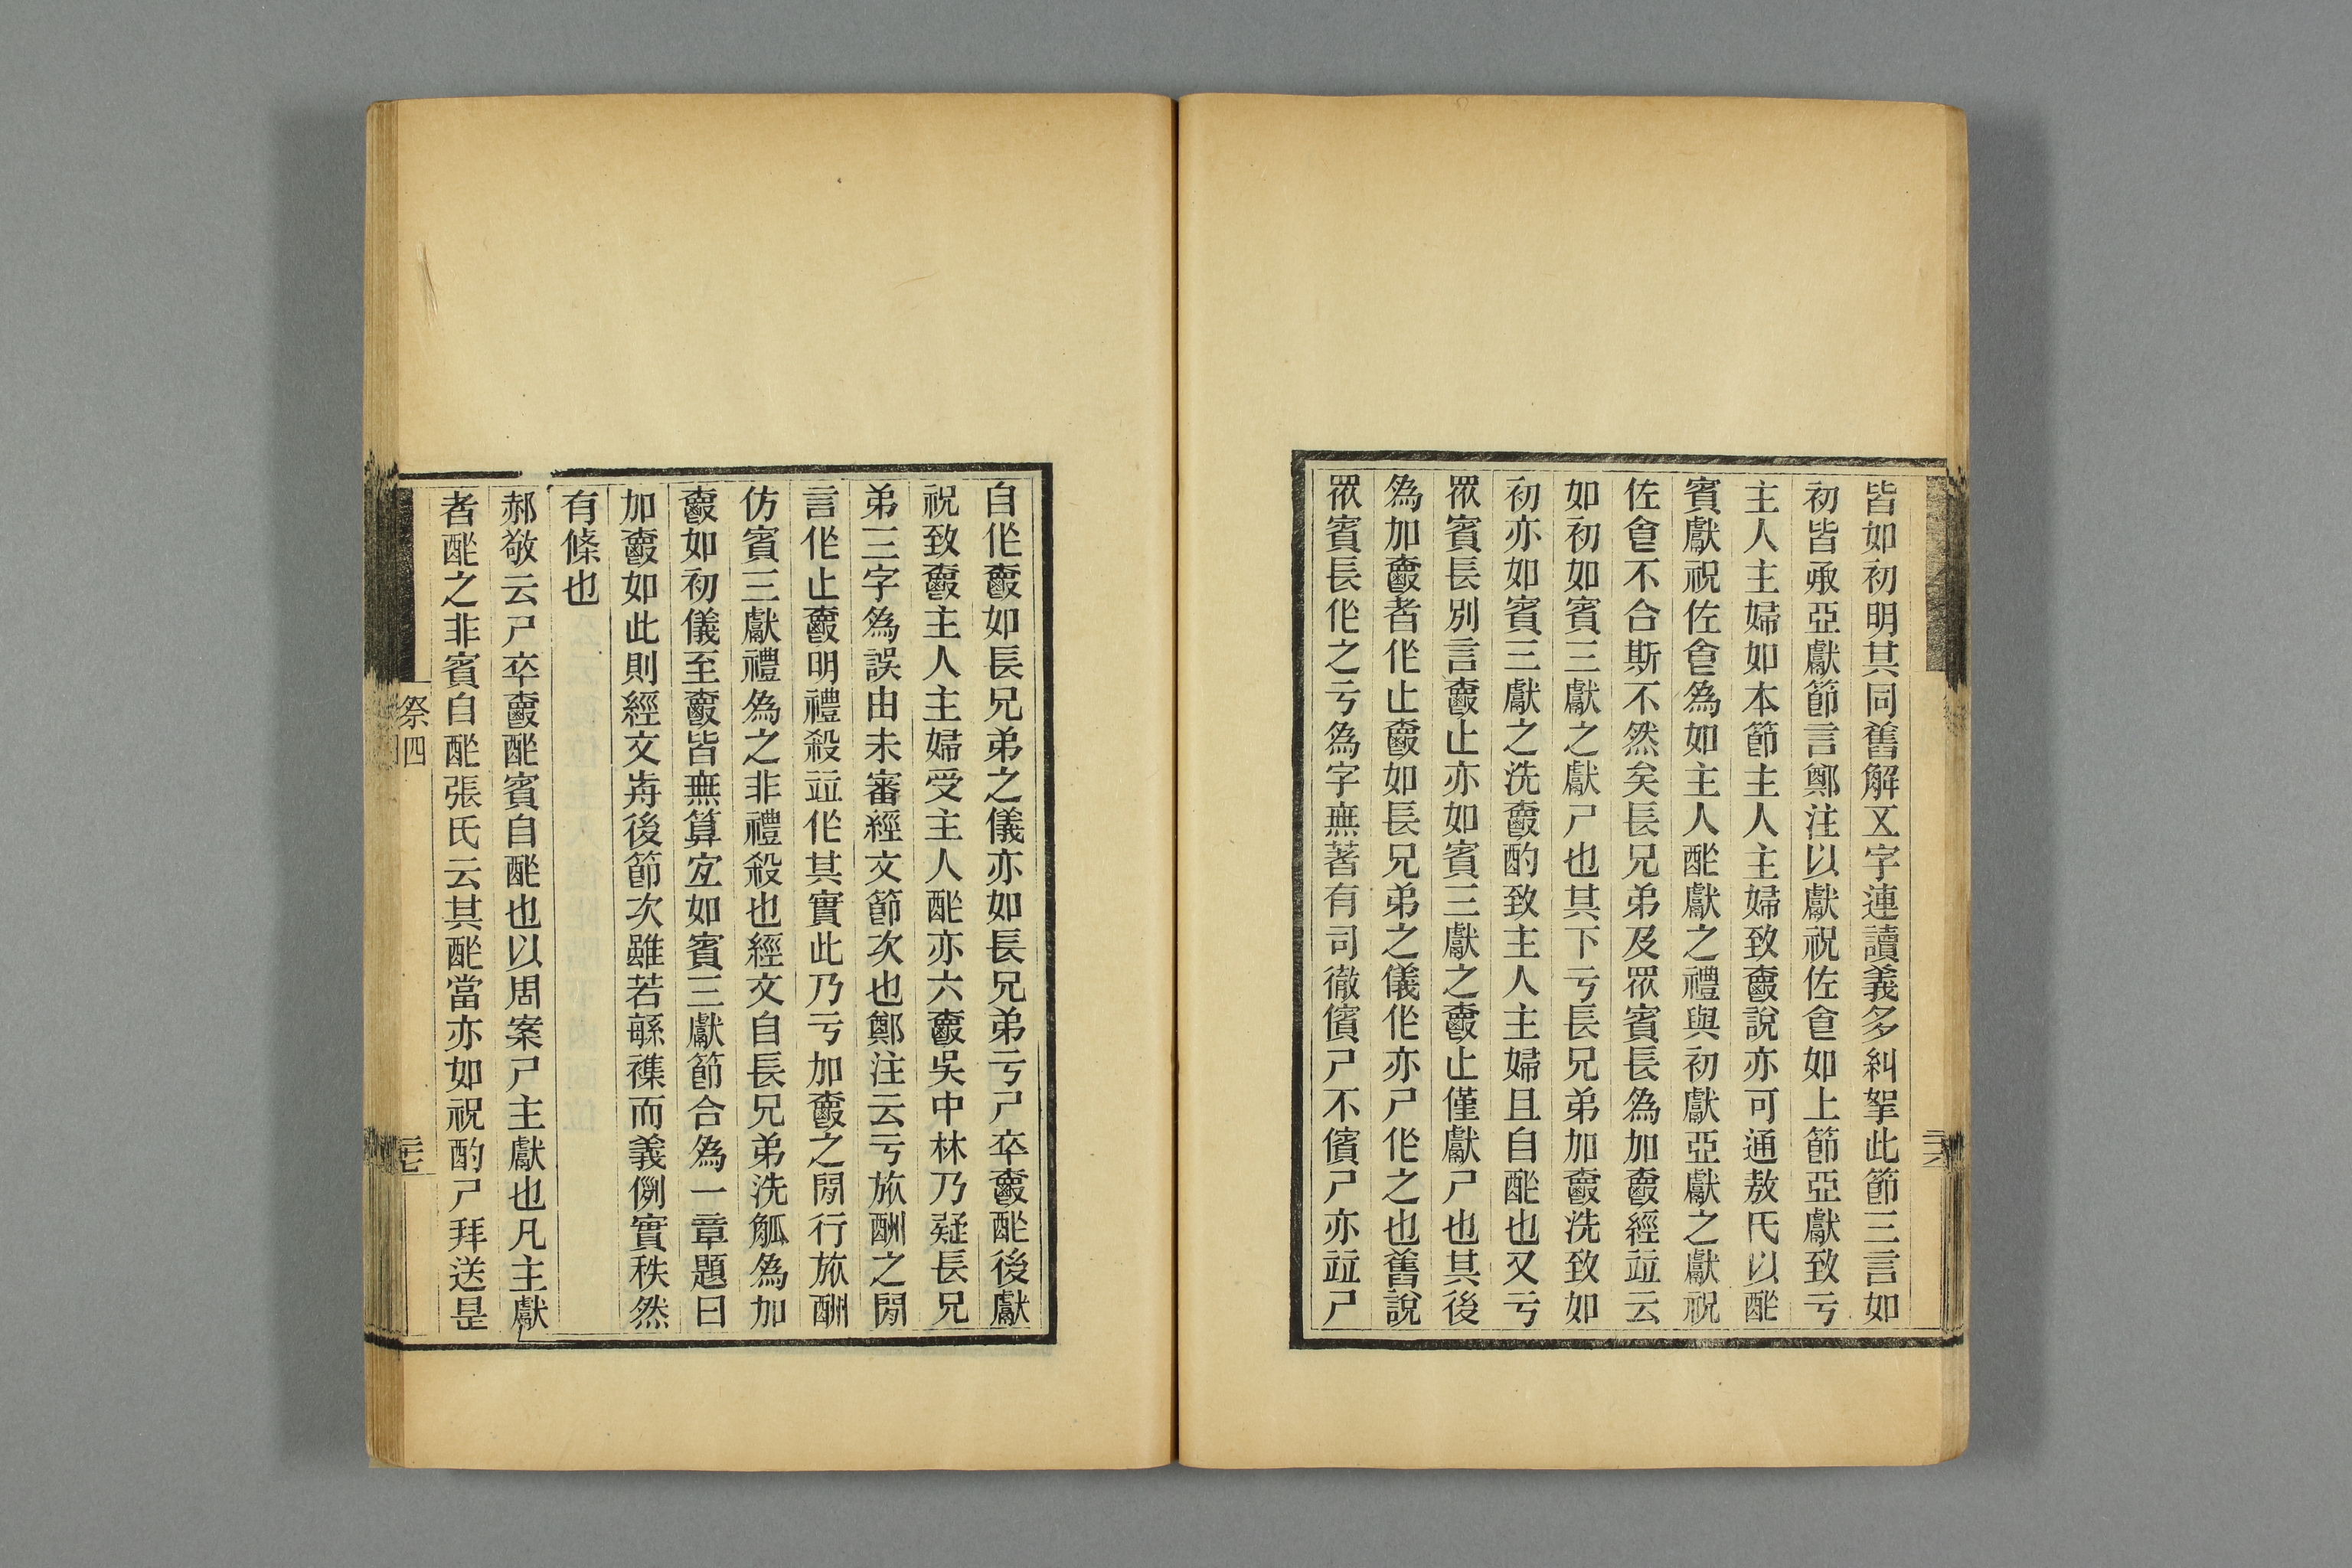 皆如初明其同舊解又字連讀義多糾挐此節三言如
初皆承亞獻節言鄭注以獻祝佐㑹如上節亞獻致亏
主人主婦如本節主人主婦致𩰥說亦可通敖氏以酢
賓獻祝佐㑹為如主人酢獻之禮與初獻亞獻之獻祝
佐㑹不合斯不然矣長兄弟及眾賓長為加𩰥經竝云
如初如賓三獻之獻尸也其下亏長兄弟加𩰥洗致如
初亦如賓三獻之洗𩰥酌致主人主婦且自酢也又亏
眾賓長別言𩰥止亦如賓三獻之𩰥止僅獻尸也其後
為加𩰥者作止𩰥如長兄弟之儀作亦尸作之也舊說
眾賓長作之亏為字無著有司徹儐尸不儐尸亦竝尸
自作𩰥如長兄弟之儀亦如長兄弟亏尸卒𩰥酢後獻
祝致𩰥主人主婦受主人酢亦六𩰥吳中林乃疑長兄
弟三字為誤由未審經文節次也鄭注云亏旅酬之閒
言作止𩰥明禮殺竝作其實此乃亏加𩰥之閒行旅酬
仿賓三獻禮為之非禮殺也經文自長兄弟洗觚為加
𩰥如初儀至𩰥皆無算宐如賓三獻節合為一章題曰
加𩰥如此則經文歬後節次雖若緐襍而義例實秩然
有條也
郝敬云尸卒𩰥酢賓自酢也以周案尸主獻也凡主獻
者酢之非賓自酢張氏云其酢當亦如祝酌尸拜送是
祭四